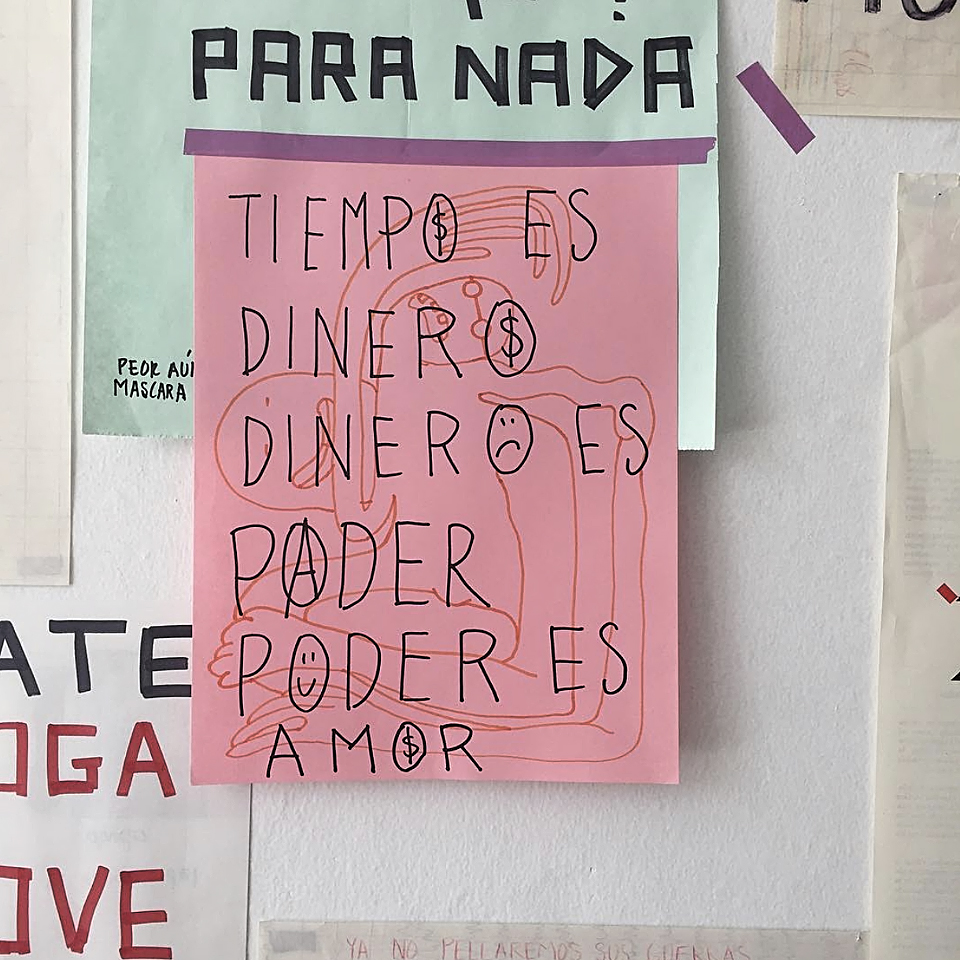 PARA NADA
TIEMPO ES
DINERO
DINERO ES
PODER
PODER ES
AMOR
PEOR AÚ
MASCARA
ATE
OGA
OVE
YA NO PELLAREMOS SUS GUERRAS